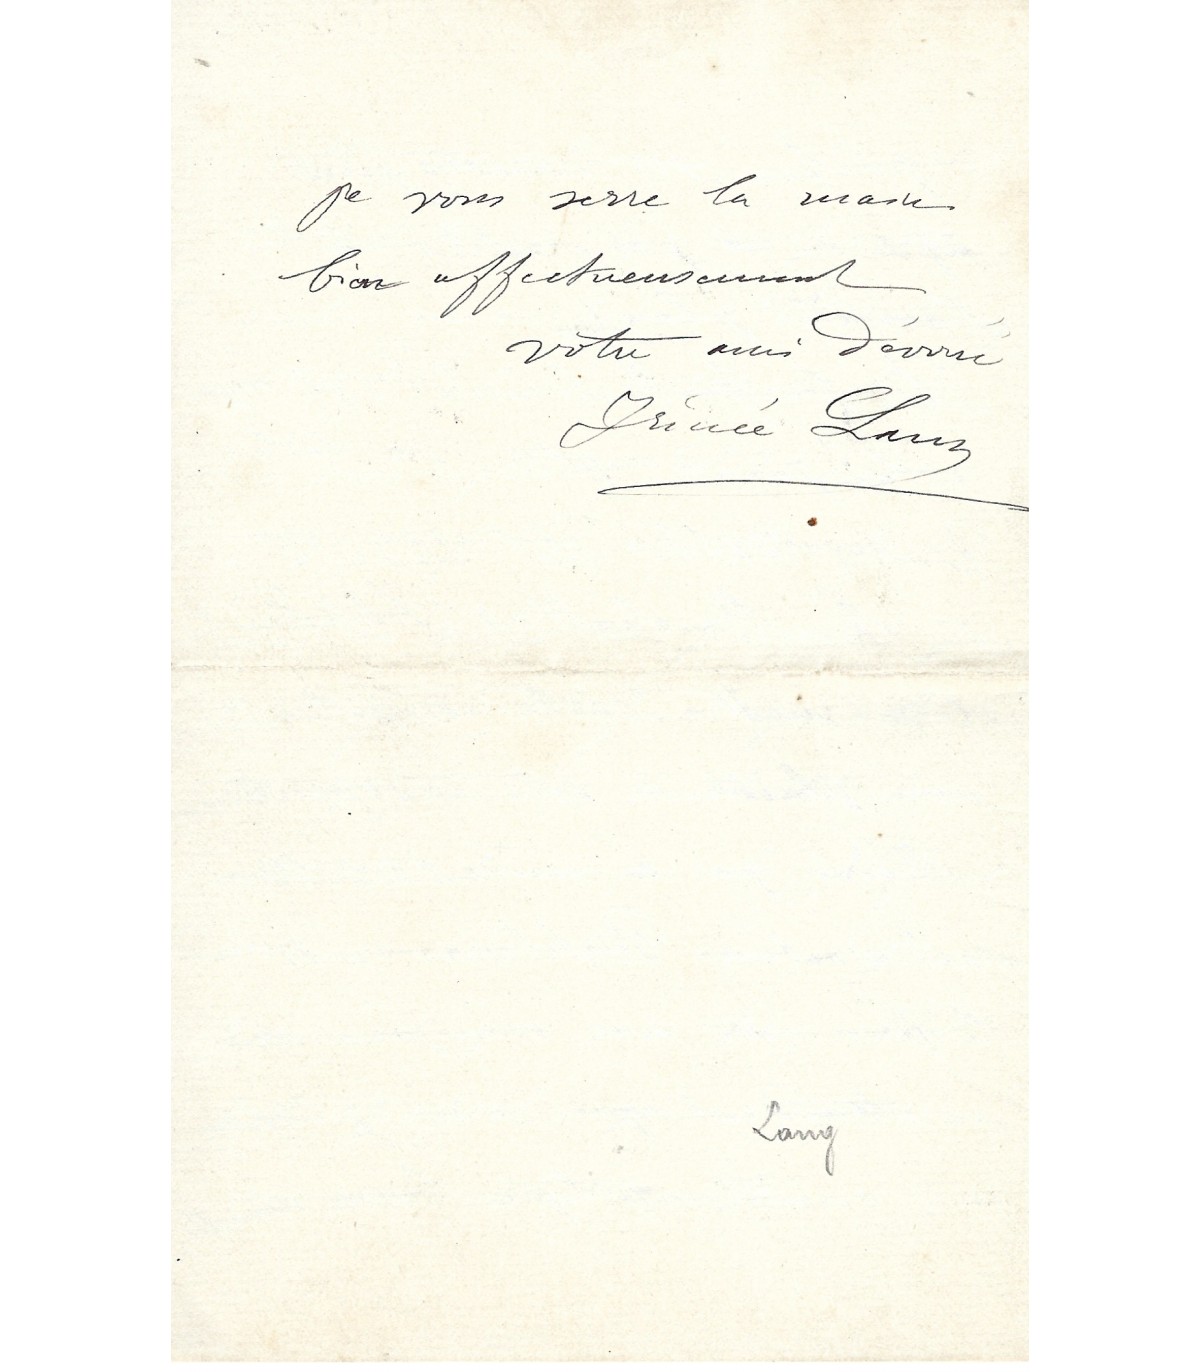 je vous serre la main
bien affectueusement
votre ami dévoué
Irénée Lang
Lang